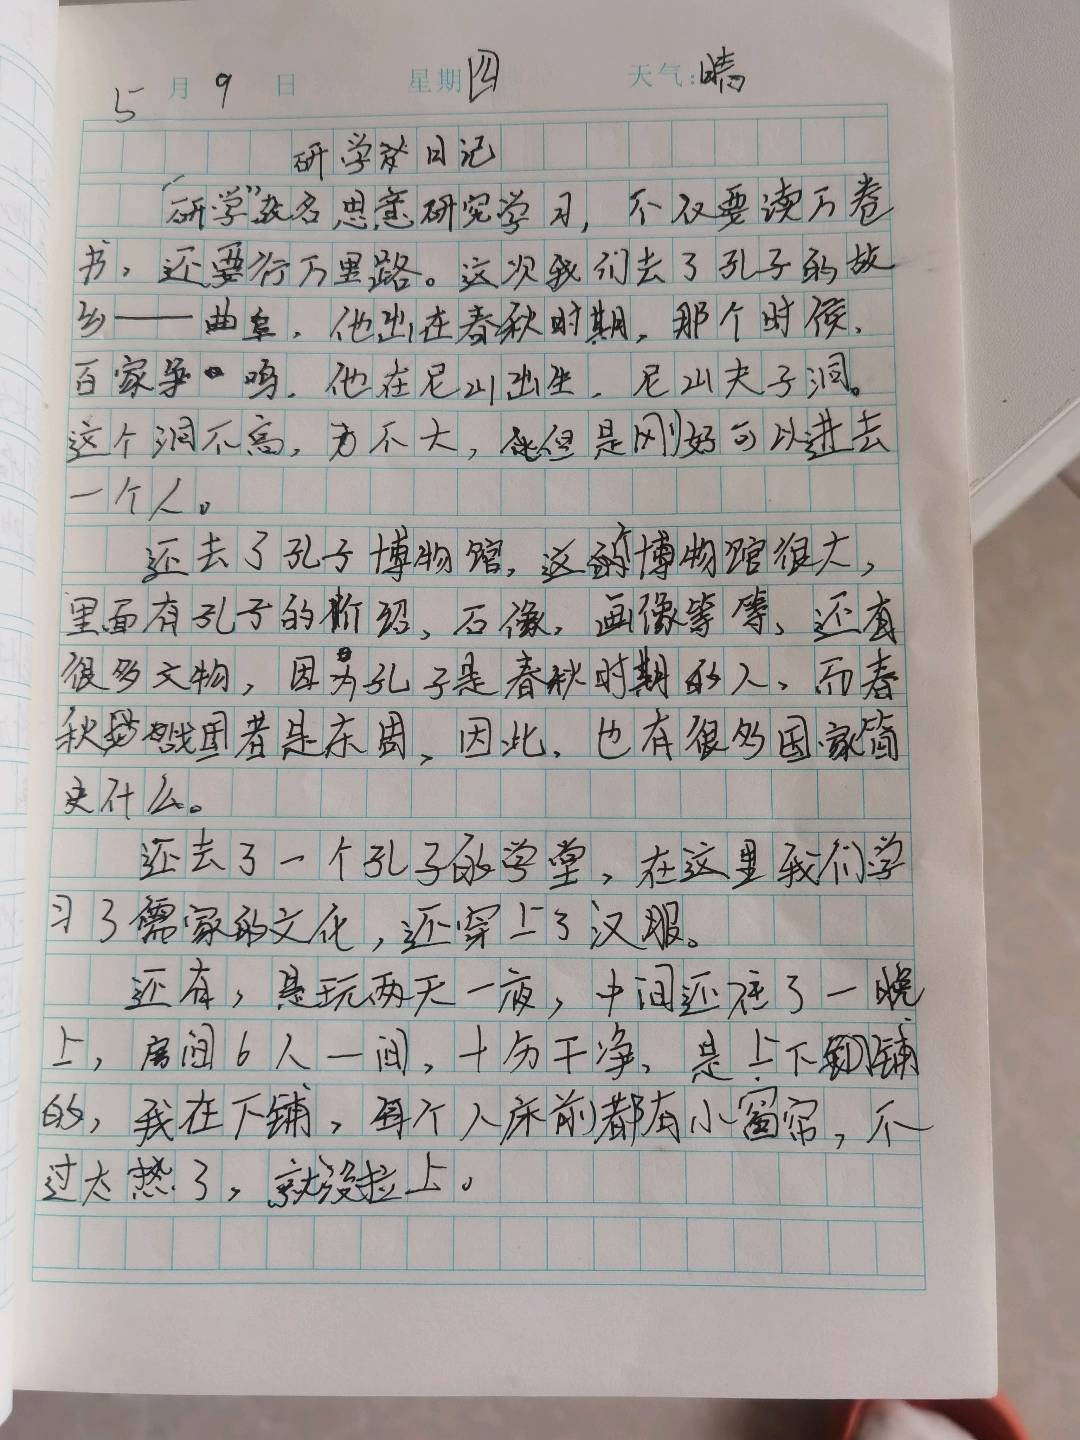 5月9日 星期四 天气:晴
研学日记
“研学”故名思意研究学习，不仅要读万卷
书，还要行万里路。这次我们去了孔子的故
乡——曲阜，他出在春秋时期，那个时候，
百家争鸣，他在尼山出生，尼山夫子洞。
这个洞不高，也不大，但是刚好可以进去
一个人。
还去了孔子博物馆，这个博物馆很大，
里面有孔子的介绍，石像，画像等等，还有
很多文物，因为孔子是春秋时期的人，而春
秋战国者是东周，因此，也有很多国家简
史什么。
还去了一个孔子的学堂，在这里我们学
习了儒家的文化，还穿上了汉服。
还有，是玩两天一夜，中间还住了一晚
上，房间6人一间，十分干净，是上下铺
的，我在下铺，每个人床前都有小窗帘，不
过太热了，就没拉上。